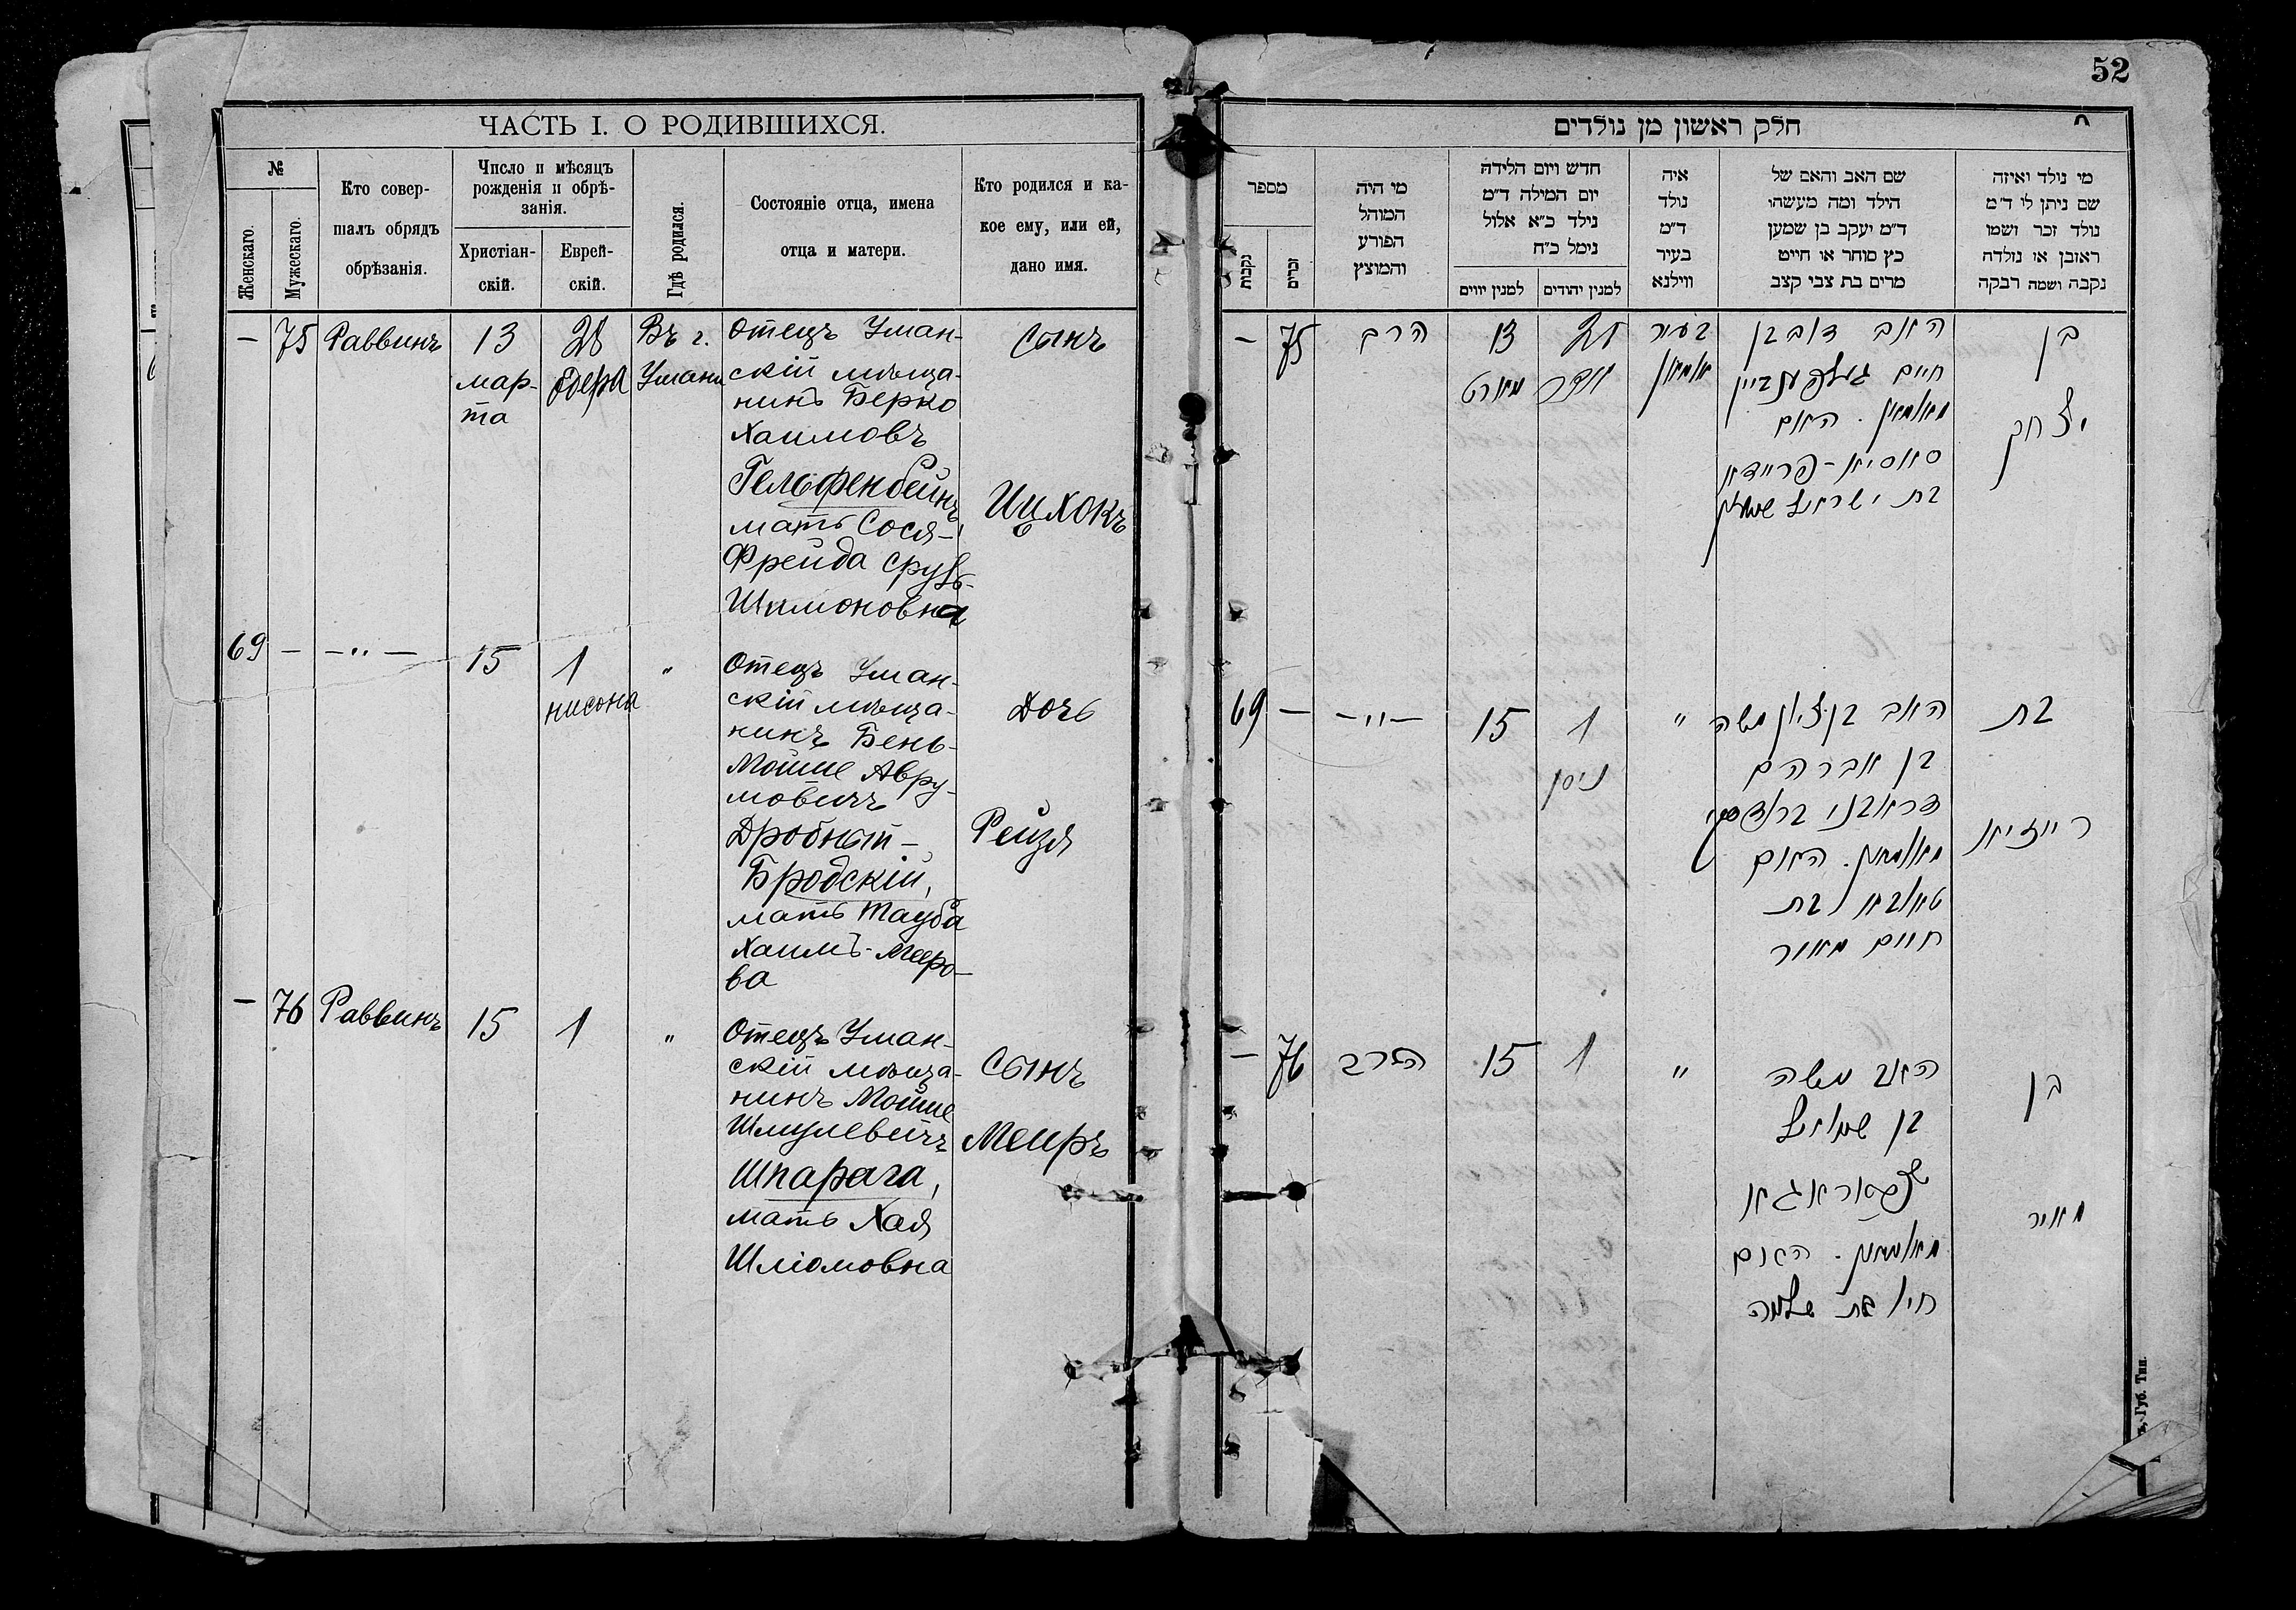 52
ЧАСТЬ I. О РОДИВШИХСЯ.
№
Женскаго.
Мужескаго.
Кто совер-
шалъ обрядъ
обрѣзанія.
Число и мѣсяцъ
рожденія и обрѣ-
занія.
Христіан-
скій.
Еврей-
скій.
Гдѣ родился.
Состояніе отца, имена
отца и матери.
Кто родился и ка-
кое ему, или ей,
дано имя.
— 75 Раввинъ 13 28 Въ г. Отецъ Уман- Сынъ
мар- одера Умани скій мѣща-
та нинъ Берко
Хаимовъ
Гельфенбейнъ,
Ицхокъ
мать Сося-
Фрейда Сруль-
Шимоновна
69 — — " — 15 1 " Отецъ Уман-
нисона скій мѣща- Дочь
нинъ Бень-
Мойше Авру-
мовичъ
Дробный- Рейзя
Бродскій,
мать Тауба
Хаимъ-Мееро-
ва
— 76 Раввинъ 15 1 " Отецъ Уман-
скій мѣща- Сынъ
нинъ Мойше
Шмулевичъ Меиръ
Шпарага,
мать Хая
Шліомовна
חלק ראשון מן נולדים
מי נולד ואיזה
שם ניתן לו ד״מ
נולד זכר ושמו
ראובן או נולדה
נקבה ושמה רבקה
שם האב והאם של
הילד ומה מעשהו
ד״מ יעקב בן שמען
כץ סוחר או חייט
מרים בת צבי קצב
איה
נולד
ד״מ
בעיר
ווילנא
חדש ויום הלידה
יום המילה ד״מ
נילד כ״א אלול
נימל כ״ח
למנין יהודים
למנין יווים
מי היה
המוהל
הפורע
והמוצץ
מספר
זכרים
נקבות
בן האב דוב בן בעיר 28 13 הרב 75 —
חיים געלפענביין אומאן אדר מארט
יצחק מאומאן. האם
סאסיא-פריידא
בת ישראל שמעון
בת האב בן ציון משה " 1 15 — " — — 69
בן אברהם ניסן
דראבני בראדסקי
רייזיא מאומאן. האם
טאובא בת
חיים מאיר
בן האב משה " 1 15 הרב 76 —
בן שמואל
שפאראגא
מאיר מאומאן. האם
חיה בת שלמה
Губ. Тип.